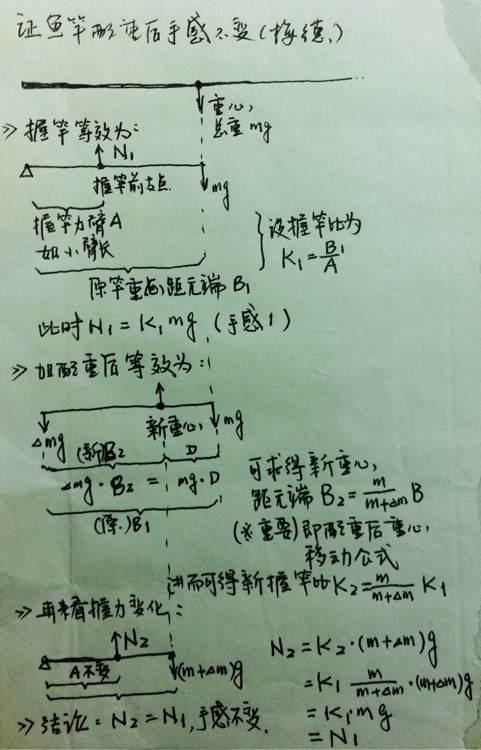 证鱼竿配重后手感不变(梅德.)
重心,
总重 mg
>> 握竿等效为:
N₁
握竿前支点
mg
握竿力臂A
如小臂长
设握竿比为
K₁ = B₁/A
原竿重心距元端 B₁
此时 N₁ = K₁ mg (手感1)
>> 加配重后等效为:
Δmg
新重心
mg
(新)B₂
D
Δmg · B₂ = mg · D
(原)B₁
可求得新重心,
距元端 B₂ = m/(m+Δm) B
(※重要) 即配重后重心,
移动公式
从而可得新握竿比 K₂ = m/(m+Δm) K₁
>> 再来看握力变化:
N₂
A不变
(m+Δm)g
N₂ = K₂ · (m+Δm)g
= K₁ m/(m+Δm) · (m+Δm)g
= K₁ mg
= N₁
>> 结论: N₂ = N₁, 手感不变.